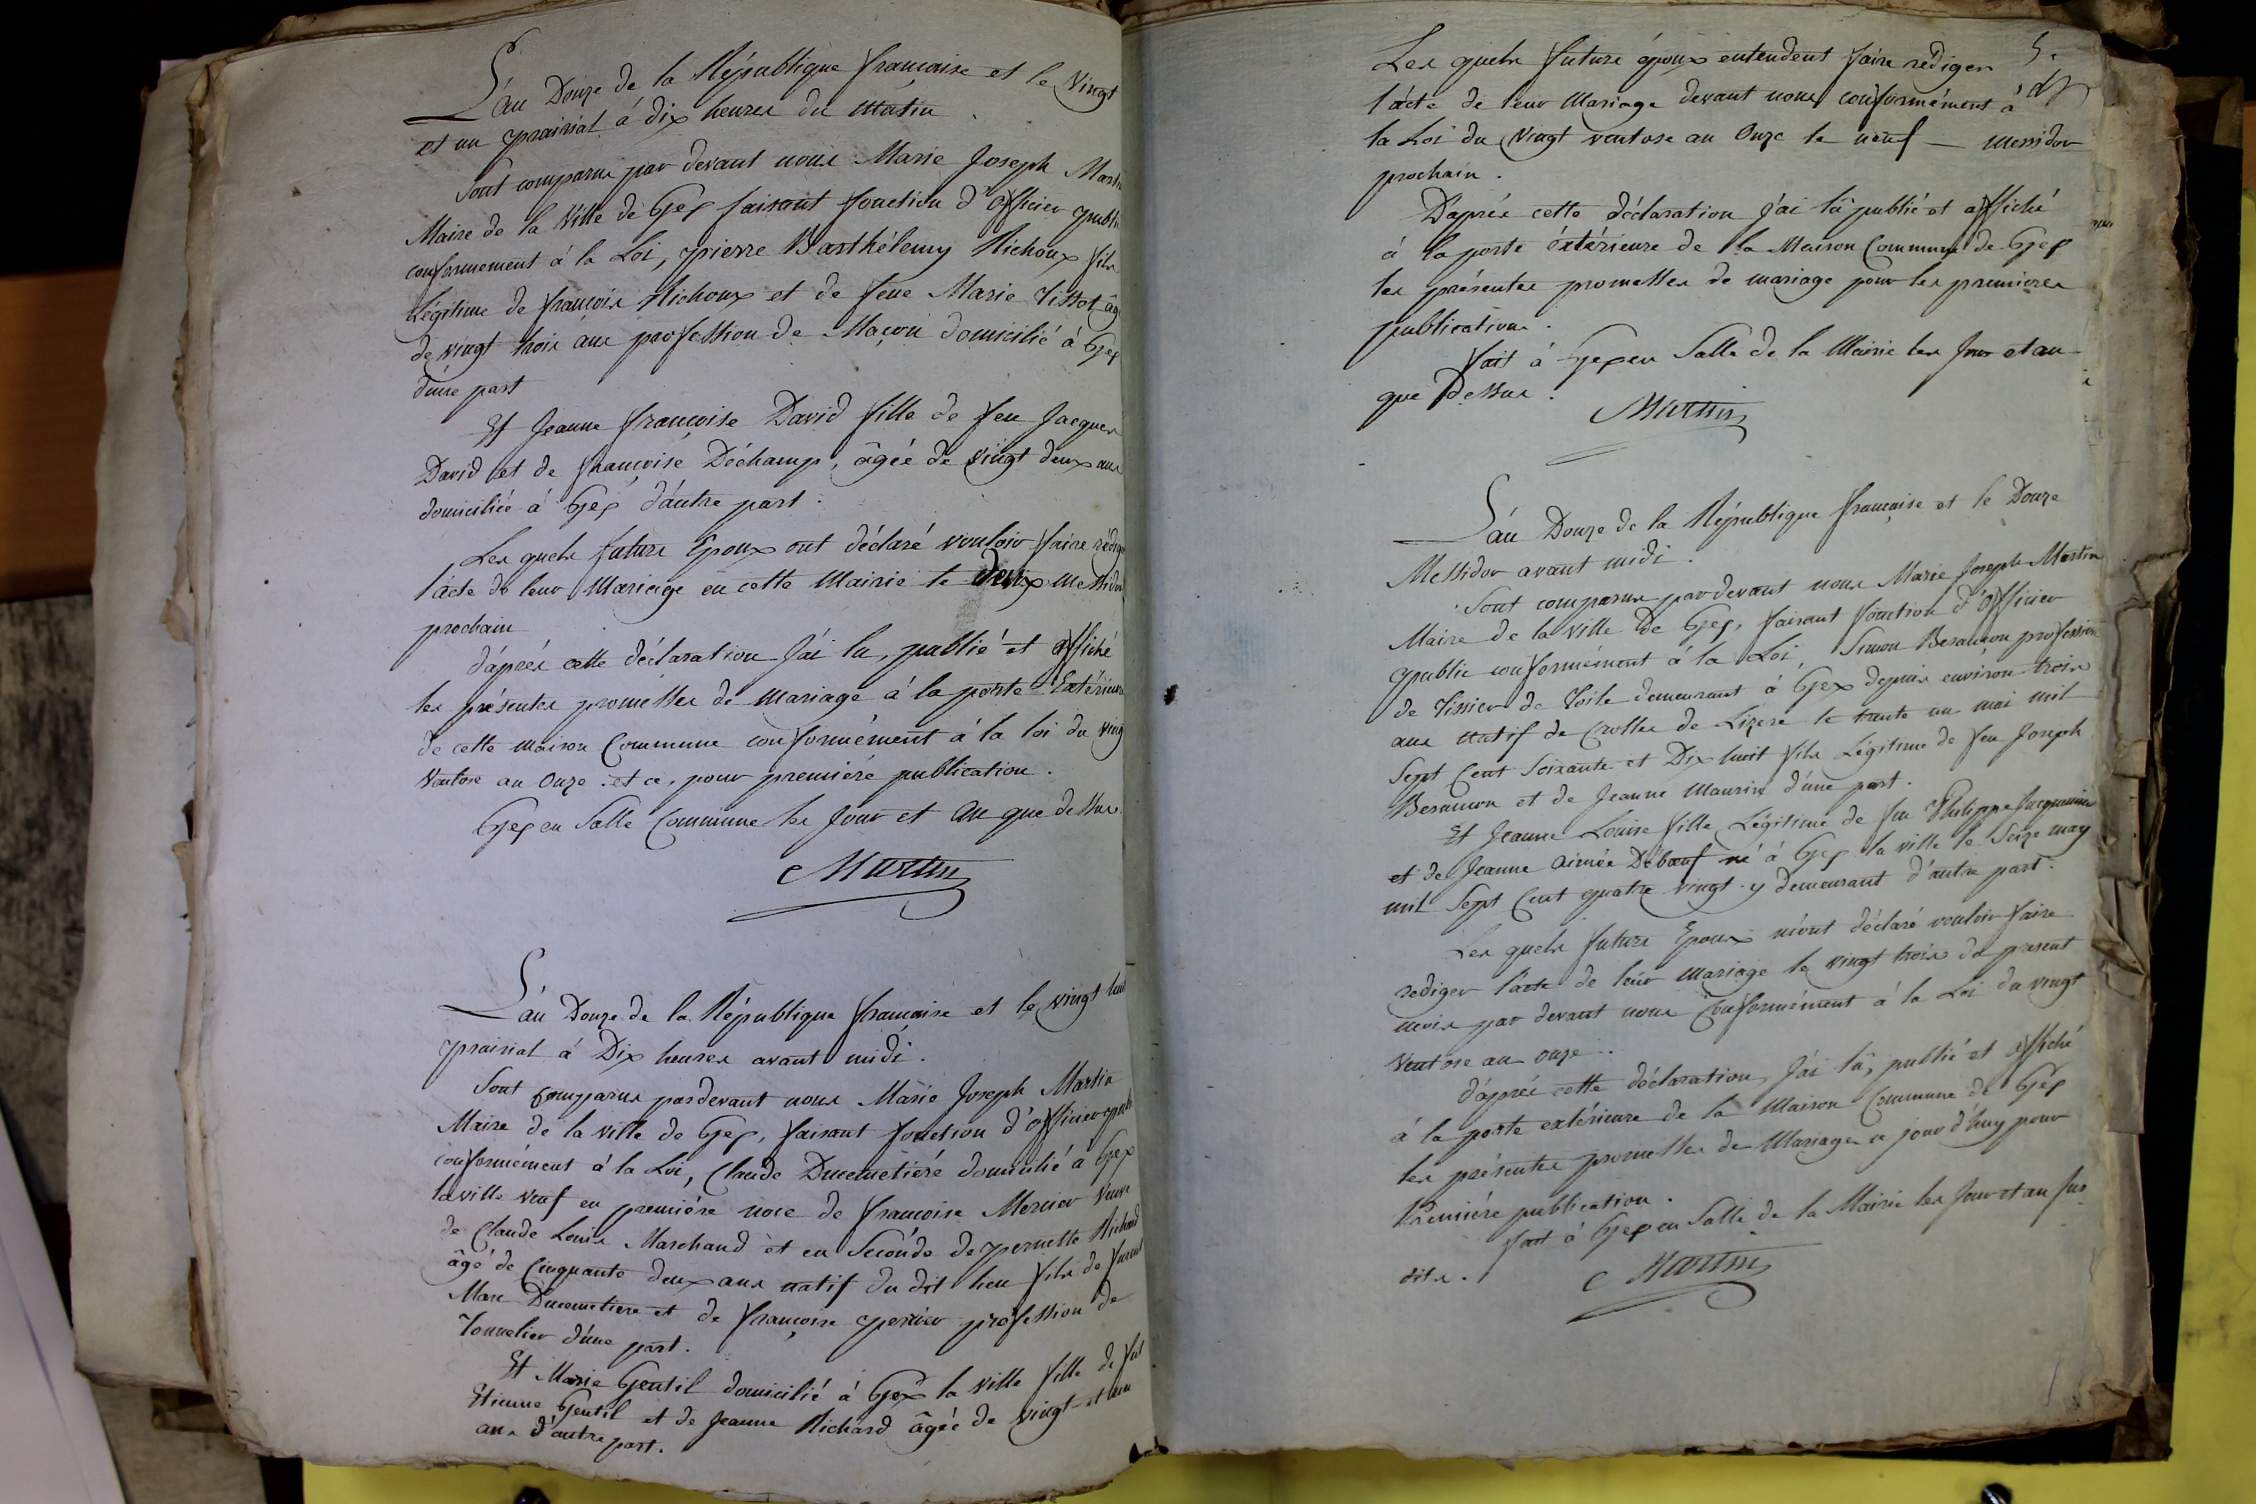 L'an Douze de la République francaise et le vingt
et un prairial à dix heures du matin
Sont comparus par devant nous Marie Joseph Martin
Maire de la Ville de Gex faisant fonction d'officier public
conformement à la Loi, pierre Barthélemy Richoux fils
Légitime de francois Richoux et de feue Marie Tissot âgé
de vingt trois ans profession de Maçon domicilié à Gex
d'une part
Et Jeanne françoise David fille de feu Jacques
David et de françoise Déchamp, âgée de vingt deux ans
domiciliée à Gex d'autre part.
Les quels futurs Epoux ont déclaré vouloir faire rédiger
l'acte de leur Mariage en cette Mairie le deux Messidor
prochain
d'après cette déclaration J'ai lu, publié et affiché
les présentes promesses de mariage à la porte Extérieure
de cette maison Commune conformément à la loi du vingt
Ventose an Onze. et ce, pour première publication.
Gex en Salle Commune les Jour et an que dessus.
Martin
L'an Douze de la République francaise et le vingt huit
prairial à Dix heures avant midi.
Sont comparus pardevant nous Marie Joseph Martin
Maire de la ville de Gex, faisant fonction d'officier public
conformément à la Loi, Claude Ducimetière domicilié à Gex
la ville veuf en première noce de francoise Mercier veuve
de Claude Louis Marchand et en Seconde de pernette Richard
âgé de Cinquante deux ans natif du dit lieu fils de furent
Marc Ducimetiere et de françoise perrier profession de
Tonnelier d'une part.
Et Marie Gentil domicilié à Gex la ville fille de feu
Etienne Gentil et de Jeanne Richard âgée de vingt et un
ans d'autre part.
5.
Les quels futurs époux entendent faire rédiger
l'acte de leur Mariage devant nous conformément à
la Loi du Vingt ventose an Onze le neuf — messidor
prochain.
D'après cette déclaration J'ai lû publié et affiché
à la porte éxtérieure de la Maison Commune de Gex
les présentes promesses de mariage pour les premieres
publications.
fait à Gex en Salle de la Mairie les Jour et an
que Dessus.
Martin
L'an Douze de la République francaise et le Douze
Messidor avant midi.
Sont comparus par devant nous Marie Joseph Martin
Maire de la ville De Gex, faisant fonction d'officier
public conformément à la Loi, Simon Besançon profession
de Tissier de Toile demeurant à Gex depuis environ trois
ans natif de Crolles de Lizere le trente un mai mil
Sept Cent Soixante et Dix huit fils Légitime de feu Joseph
Besançon et de Jeanne Maurin d'une part.
Et Jeanne Louise fille Légitime de feu Philippe Jacquinier
et de Jeanne aimée Débœuf né à Gex la ville le Seize may
mil Sept Cent quatre vingt y demeurant d'autre part.
Les quels futurs Epoux m'ont déclaré vouloir faire
rediger l'acte de leur mariage le vingt trois du present
mois par devant nous Conformément à la Loi du vingt
Ventose an onze.
d'après cette déclaration J'ai lû, publié et affiché
à la porte extérieure de la Maison Commune de Gex
les présentes promesses de Mariages ce jour d'huy pour
Première publication.
fait à Gex en Salle de la Mairie les Jour et an sus
dits.
Martin